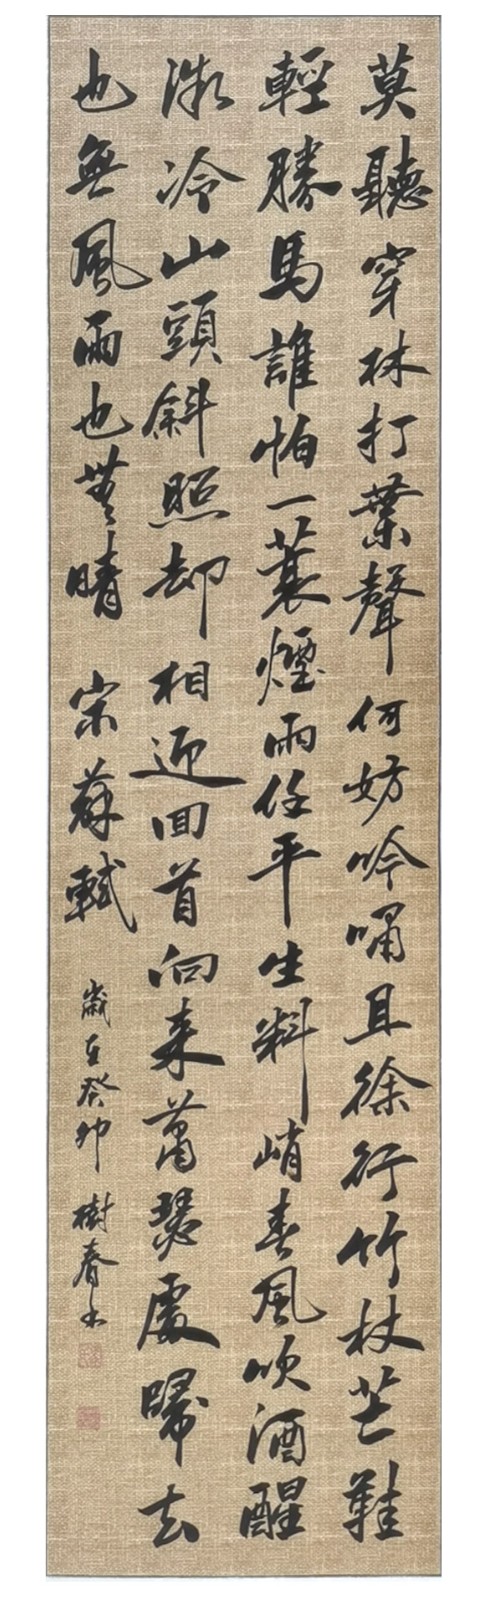 莫聽穿林打葉聲何妨吟嘯且徐行竹杖芒鞋
輕勝馬誰怕一蓑煙雨任平生料峭春風吹酒醒
微冷山頭斜照却相迎回首向来蕭瑟處歸去
也無風雨也無晴 宋蘇軾 歲在癸卯 樹春书